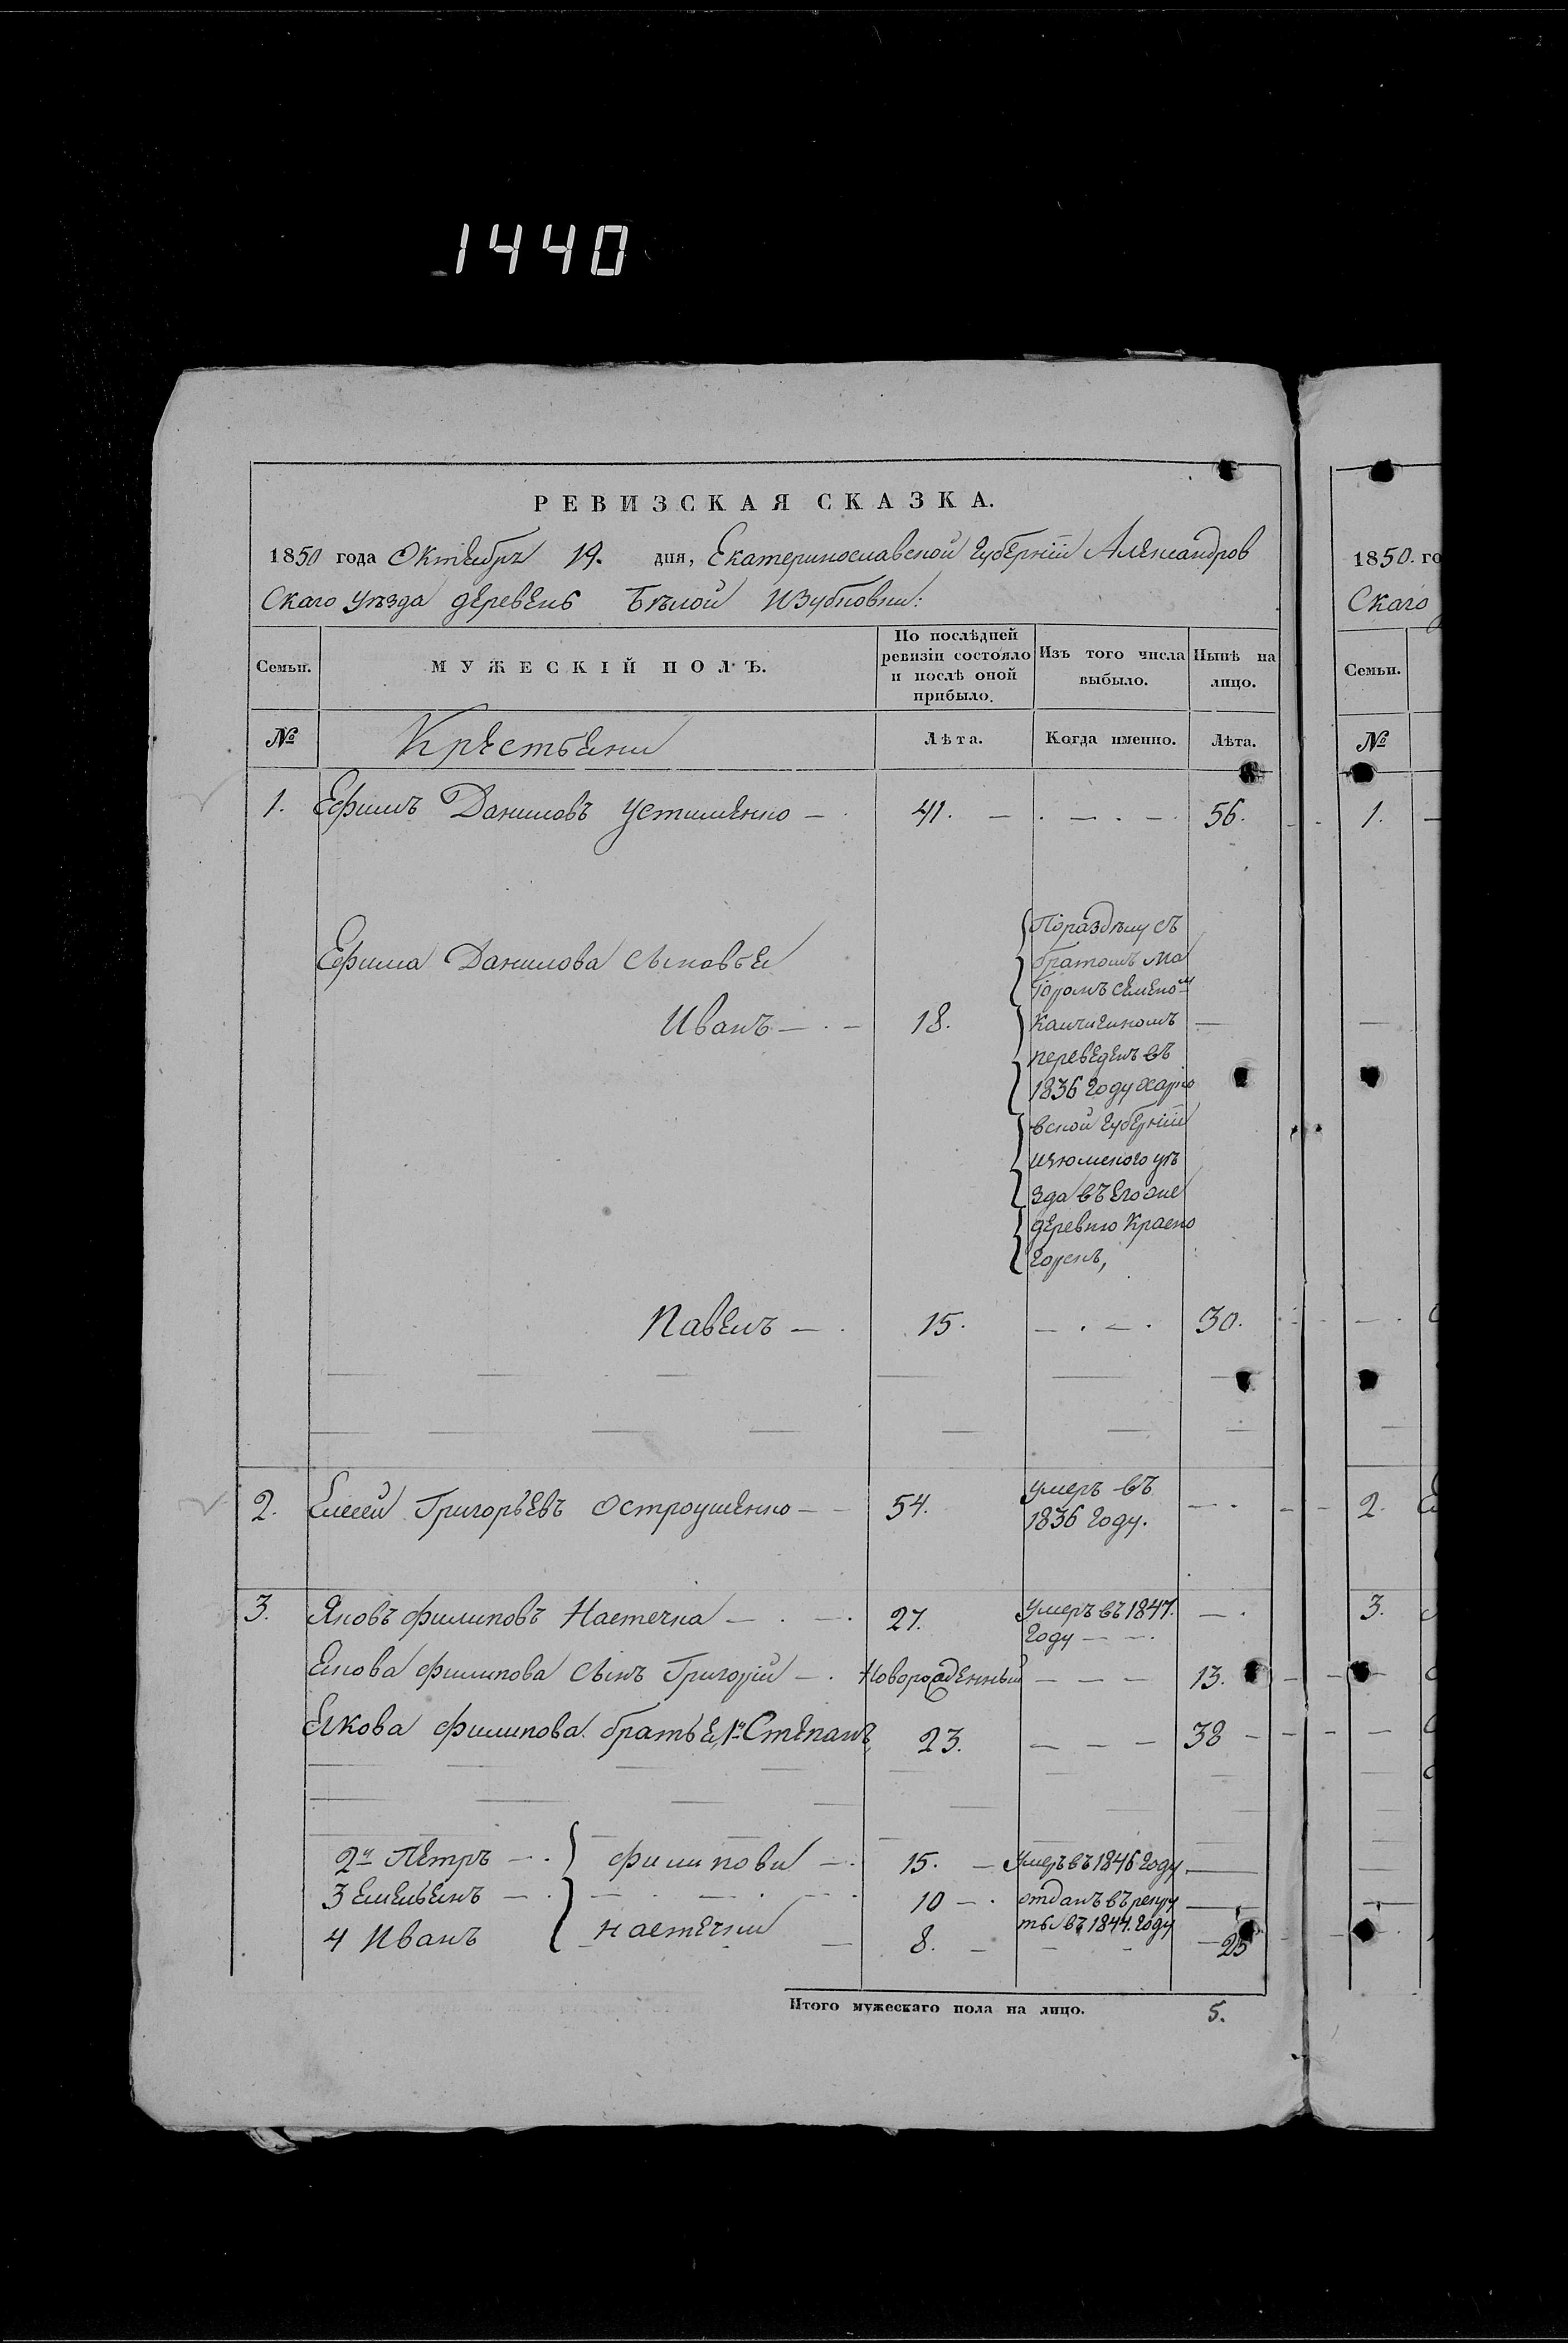 1440
РЕВИЗСКАЯ СКАЗКА.
1850 года Октебръ 19. дня, Екатеринославской Губерніи Александров
Скаго уезда деревень Бѣлой
Семьи. МУЖЕСКІЙ ПОЛЪ. По послѣдней ревизіи состояло и послѣ оной прибыло. Изъ того числа выбыло. Нынѣ на лицо.
№ Крестьени Лѣта. Когда именно. Лѣта.
1. Ефимъ Даниловъ Устименко 41. 56.
Ефима Данилова сыновьи
Иванъ 18.
Пораздѣлу съ
братомъ Ма
іоромъ Семеном
переведенъ въ
1836 году Харко
вской Губерніи
Изюмского уѣ
зда въ его же
деревню Красно
горск,
Павелъ 15. 30.
2. Елесей Григорьевъ Остроушенко 54. умеръ въ
1836 году.
3. Яковъ Филиповъ Настечка 27. Умеръ въ 1847.
году
Екова Филипова сынъ Григорій Новорожденный 13.
Екова Филипова братье, 1й Степанъ 23. 38
2й Петръ Филипови 15. Умеръ въ 1846 году
3 Емельенъ 10 отданъ въ рекру
ты въ 1844. году
4 Иванъ Настечки 8. 23
Итого мужескаго пола на лицо. 5.
1850. го
Скаго
Семьи.
№
1.
2.
3.